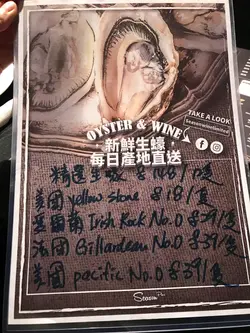 OYSTER & WINE
新鮮生蠔
每日產地直送
TAKE A LOOK!
精選生蠔 $148/12隻
美國 yellow stone $18/隻
愛爾蘭 Irish Rock No.0 $29/隻
法國 Gillardeau No.0 $39/隻
美國 pacific No.0 $39/隻
Season